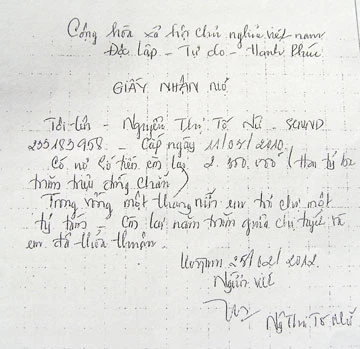 Cộng hòa xã hội chủ nghĩa việt nam
Độc lập - Tự do - Hạnh Phúc
GIẤY NHẬN NỢ
Tôi tên - Nguyễn Thị Tố Nữ - SCMND
235183958 - Cấp ngày 11/05/2010.
Có nợ số tiền còn lại 2.300.000 (Hai tỷ ba
trăm triệu đồng chẵn)
Trong vòng một tháng nữa em trả chị một
tỷ tám - Còn lại năm trăm
em đã thỏa thuận.
25/02/2012
Người viết
Ng Thị Tố Nữ